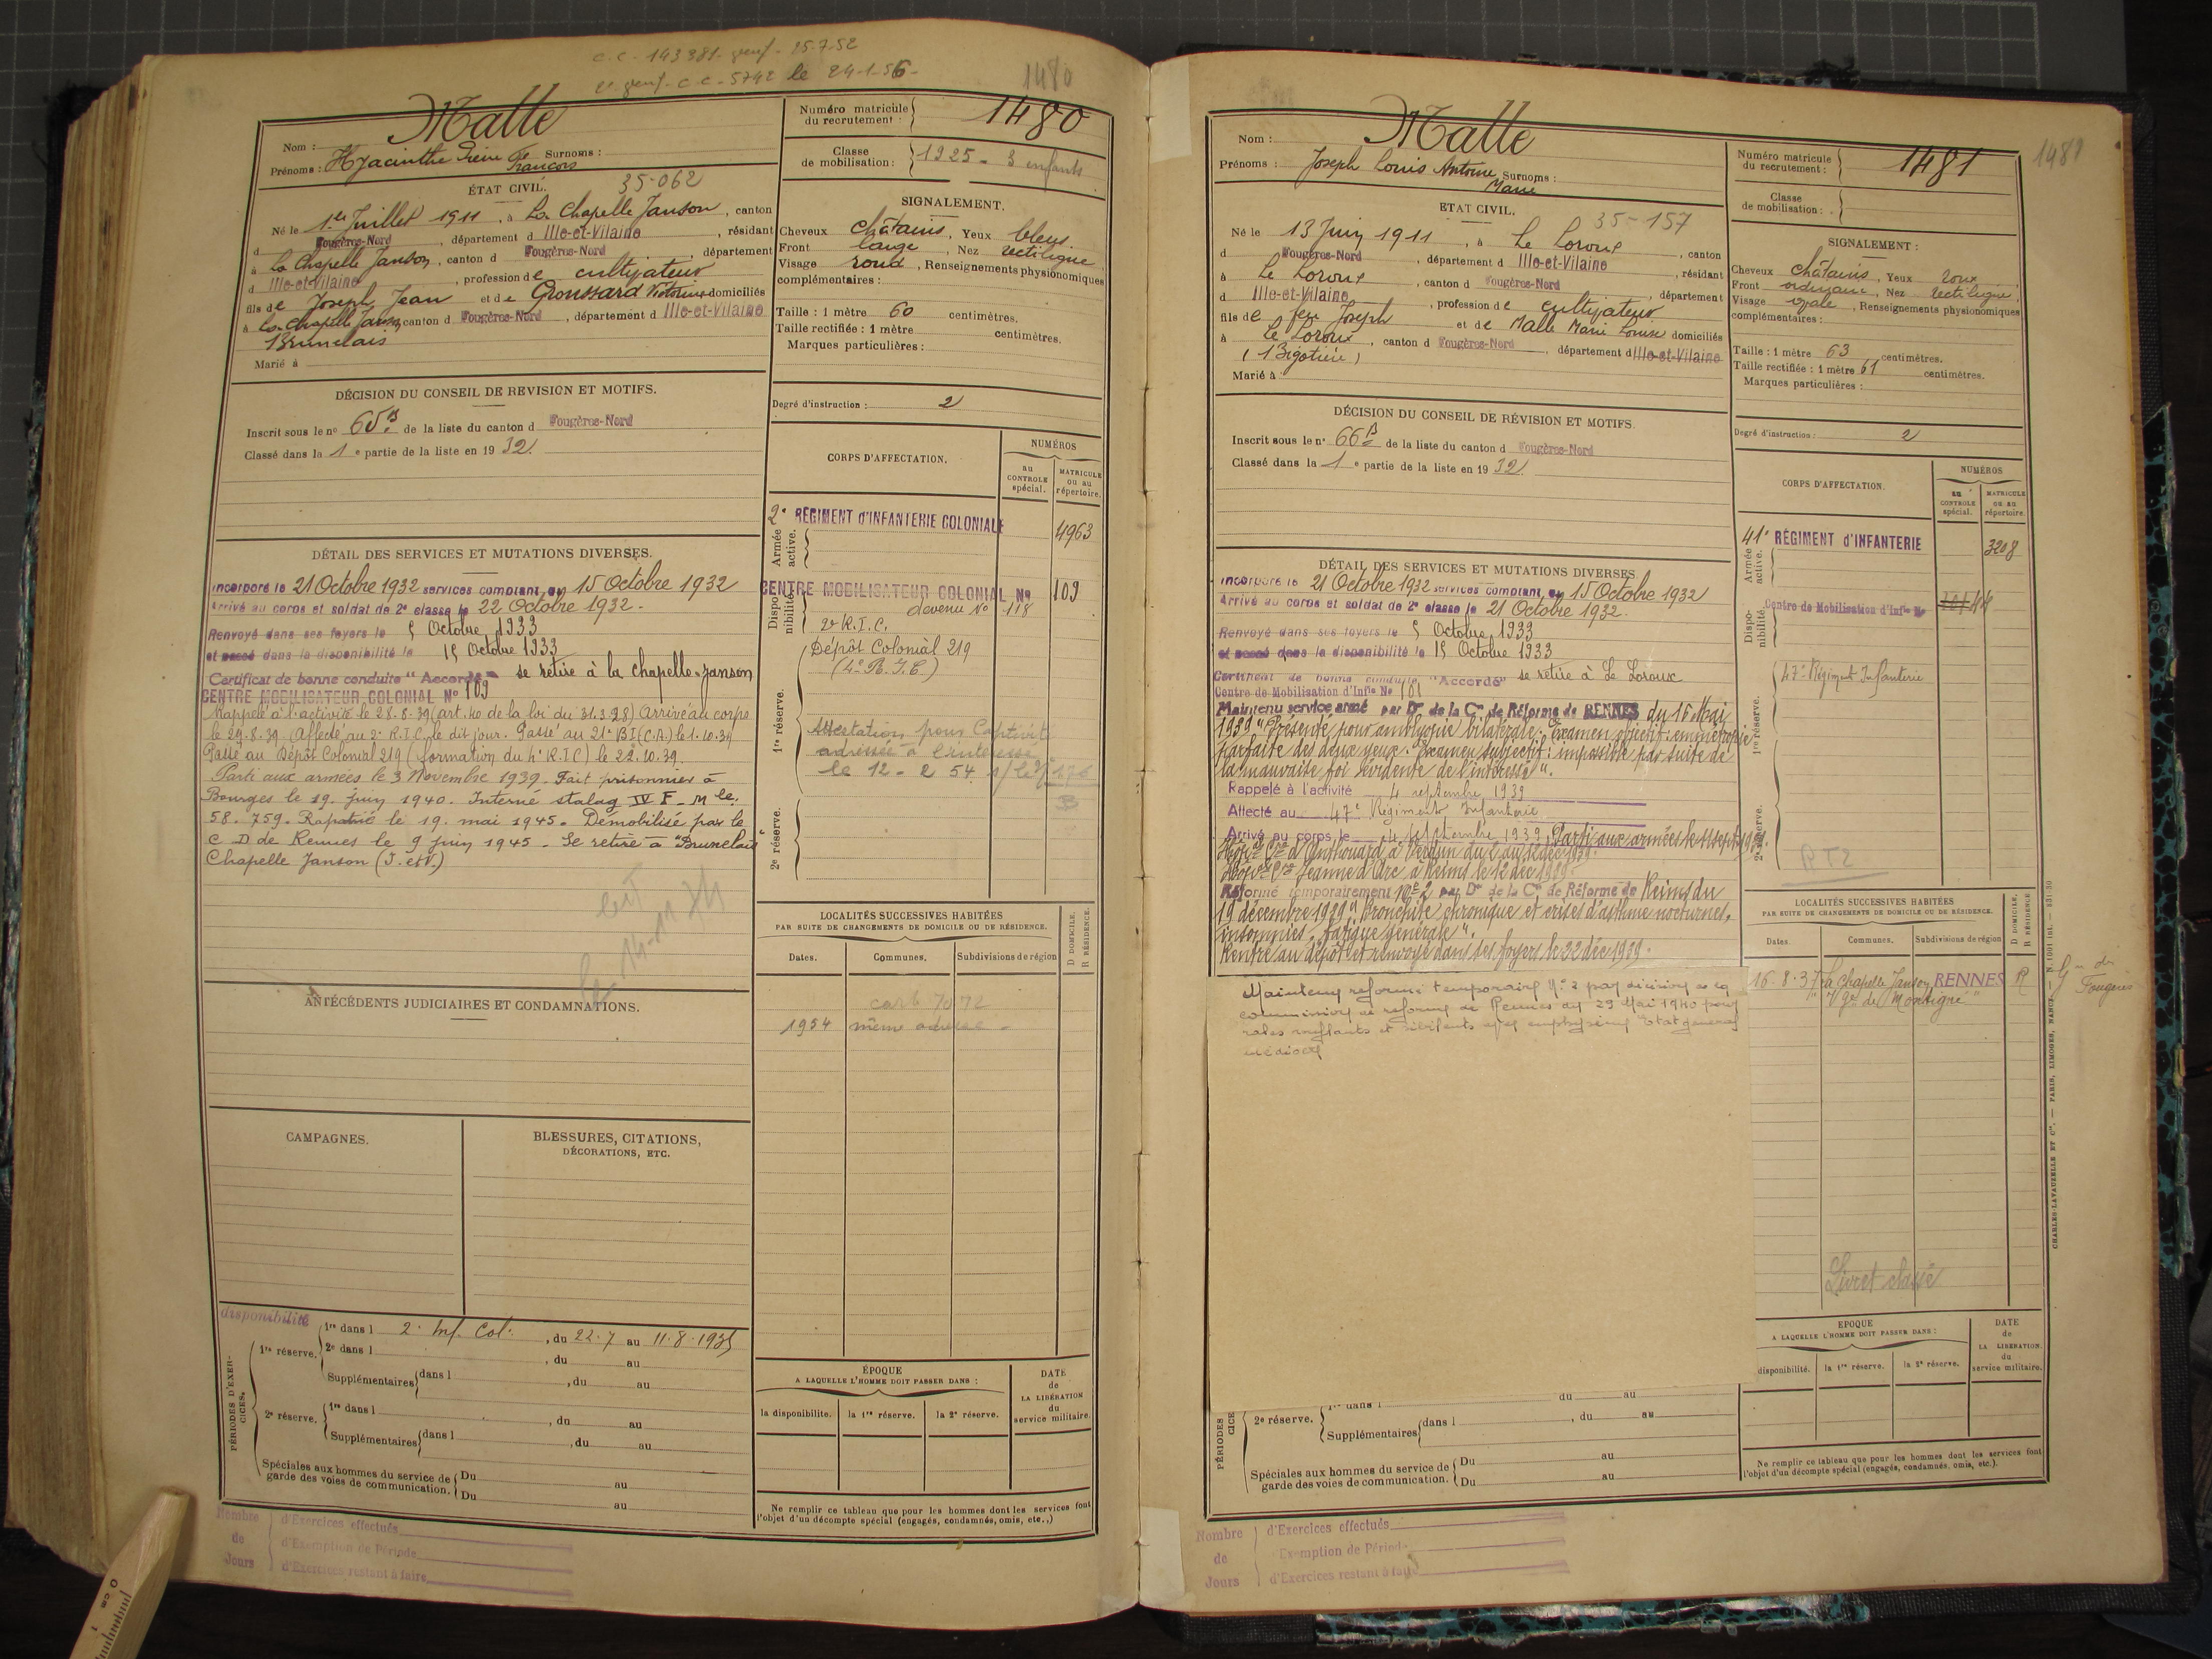 C.C. 143381. genf. 25-7-52
genf. C.C. 5742 le 24-1-56-
1480
Malle
Nom :
Prénoms : Hyacinthe Pierre Surnoms :
François
Numéro matricule du recrutement : 1480
Classe de mobilisation : 1925 - 3 enfants
ÉTAT CIVIL. 35-062
Né le 1er Juillet 1911, à La Chapelle Janson, canton
d Fougères-Nord, département d Ille-et-Vilaine, résidant
à La Chapelle Janson, canton d Fougères-Nord, département
d Ille-et-Vilaine, profession de cultivateur
fils de Joseph Jean et de Groussard Victorine domiciliés
à La Chapelle Janson, canton d Fougères-Nord, département d Ille-et-Vilaine
Brunelais
Marié à
SIGNALEMENT.
Cheveux châtains, Yeux bleus.
Front large, Nez rectiligne
Visage rond, Renseignements physionomiques
complémentaires :
Taille : 1 mètre 60 centimètres.
Taille rectifiée : 1 mètre centimètres.
Marques particulières :
Degré d'instruction : 2
DÉCISION DU CONSEIL DE REVISION ET MOTIFS.
Inscrit sous le no 65 B de la liste du canton d Fougères-Nord
Classé dans la 1e partie de la liste en 1932.
CORPS D'AFFECTATION.
NUMÉROS
au CONTROLE spécial.
MATRICULE ou au répertoire.
Armée active.
2e RÉGIMENT d'INFANTERIE COLONIALE 4963
Disponibilité.
CENTRE MOBILISATEUR COLONIAL No 109
devenu No 118
2e R.I.C.
1re réserve.
Dépôt Colonial 219
(4e R.I.C)
Attestation pour Captivité
adressée à l'intéressé
le 12 - 2 54
2e réserve.
DÉTAIL DES SERVICES ET MUTATIONS DIVERSES.
Incorporé le 21 Octobre 1932 services comptant du 15 Octobre 1932
Arrivé au corps et soldat de 2e classe le 22 Octobre 1932.
Renvoyé dans ses foyers le 5 Octobre 1933
et passé dans la disponibilité le 15 Octobre 1933
Certificat de bonne conduite "Accordé" se retire à la chapelle-Janson
CENTRE MOBILISATEUR COLONIAL No 109
Rappelé à l'activité le 28.8.39 (art. 40 de la loi du 31.3.28) Arrivé au corps
le 29.8.39. Affecté au 2e R.I.C. le dit jour. Passé au 21e BI (C.A.) le 1.10.39
Passé au Dépôt Colonial 219 (formation du 4e R.I.C) le 22.10.39.
Parti aux armées le 3 Novembre 1939. Fait prisonnier à
Bourges le 19. juin 1940. Interné stalag IV F - Mle.
58.759. Rapatrié le 19. mai 1945. Démobilisé par le
C D de Rennes le 9 juin 1945. Se retire à "Brunelais"
Chapelle Janson (I. et V.)
LOCALITÉS SUCCESSIVES HABITÉES
PAR SUITE DE CHANGEMENTS DE DOMICILE OU DE RÉSIDENCE.
D DOMICILE. R RÉSIDENCE.
Dates. Communes. Subdivisions de région
1954 même adresse -
ANTÉCÉDENTS JUDICIAIRES ET CONDAMNATIONS.
CAMPAGNES.
BLESSURES, CITATIONS,
DÉCORATIONS, ETC.
disponibilité
PÉRIODES D'EXERCICES.
1re réserve. 1re dans l 2e Inf. Col., du 22.7 au 11.8.1935
2e dans l , du au
Supplémentaires dans l , du au
2e réserve. 1re dans l , du au
Supplémentaires dans l , du au
Spéciales aux hommes du service de garde des voies de communication. Du au
Du au
ÉPOQUE
A LAQUELLE L'HOMME DOIT PASSER DANS :
la disponibilité. la 1re réserve. la 2e réserve.
DATE de LA LIBÉRATION du service militaire.
Ne remplir ce tableau que pour les hommes dont les services font
l'objet d'un décompte spécial (engagés, condamnés, omis, etc.,)
Nombre de Jours
d'Exercices effectués
d'Exemption de Période
d'Exercices restant à faire
1481
Malle
Nom :
Prénoms : Joseph Louis Antoine Surnoms :
Marie
Numéro matricule du recrutement : 1481
Classe de mobilisation :
ETAT CIVIL. 35-157
Né le 13 Juin 1911, à Le Loroux, canton
d Fougères-Nord, département d Ille-et-Vilaine, résidant
à Le Loroux, canton d Fougères-Nord, département
d Ille-et-Vilaine, profession de cultivateur
fils de feu Joseph et de Malle Marie Louise domiciliés
à Le Loroux, canton d Fougères-Nord, département d Ille-et-Vilaine
(Bigotière)
Marié à :
SIGNALEMENT :
Cheveux châtains, Yeux roux
Front ordinaire, Nez rectiligne
Visage ovale, Renseignements physionomiques
complémentaires :
Taille : 1 mètre 63 centimètres.
Taille rectifiée : 1 mètre 61 centimètres.
Marques particulières :
Degré d'instruction : 2
DÉCISION DU CONSEIL DE RÉVISION ET MOTIFS.
Inscrit sous le no 66 B de la liste du canton d Fougères-Nord
Classé dans la 1e partie de la liste en 1932
CORPS D'AFFECTATION.
NUMÉROS
au CONTROLE spécial.
MATRICULE ou au répertoire.
Armée active.
41e RÉGIMENT d'INFANTERIE 3208
Disponibilité.
Centre de Mobilisation d'Infie No
1re réserve.
47e Régiment Infanterie
2e réserve.
DÉTAIL DES SERVICES ET MUTATIONS DIVERSES
Incorporé le 21 Octobre 1932 services comptant du 15 Octobre 1932
Arrivé au corps et soldat de 2e classe le 21 Octobre 1932.
Renvoyé dans ses foyers le 5 Octobre 1933
et passé dans la disponibilité le 15 Octobre 1933
Certificat de bonne conduite "Accordé" se retire à Le Loroux
Centre de Mobilisation d'Infie No 101
Maintenu service armé par Don de la Con de Réforme de RENNES du 16 Mai
1939 "Présenté pour amblyopie bilatérale. Examen objectif : emmétropie
parfaite des deux yeux. Examen subjectif : impossible par suite de
la mauvaise foi évidente de l'intéressé".
Rappelé à l'activité 4 septembre 1939
Affecté au 47e Régiment Infanterie
Arrivé au corps le 4 septembre 1939. Parti aux armées le 11 sept 1939.
à Verdun du 2 au 12 déc 1939.
Jeanne d'Arc à Reims le 12 déc 1939.
Réformé temporairement No 2 par Don de la Con de Réforme de Reims du
19 décembre 1939 "Bronchite chronique et crises d'asthme nocturnes,
insomnies, fatigue générale".
Rentré au dépôt et renvoyé dans ses foyers le 22 déc 1939.
Maintenu réformé temporaire No 2 par décision de la
commission de réforme de Rennes du 29 Mai 1940 pour
rales ronflants et sibilants emphysème Etat général
médiocre
LOCALITÉS SUCCESSIVES HABITÉES
PAR SUITE DE CHANGEMENTS DE DOMICILE OU DE RÉSIDENCE.
D DOMICILE. R RÉSIDENCE
Dates. Communes. Subdivisions de région
16.8.37 La Chapelle Janson RENNES R
de Montigné"
Fougères
Livret classé
PÉRIODES
2e réserve. 1re dans l du au
Supplémentaires dans l , du au
Spéciales aux hommes du service de garde des voies de communication. Du au
Du au
EPOQUE
A LAQUELLE L'HOMME DOIT PASSER DANS :
disponibilité. la 1re réserve. la 2e réserve.
DATE de LA LIBERATION du service militaire.
Ne remplir ce tableau que pour les hommes dont les services font
l'objet d'un décompte spécial (engagés, condamnés, omis, etc.).
Nombre de Jours
d'Exercices effectués
Exemption de Période
d'Exercices restant à faire
CHARLES-LAVAUZELLE ET Cie. — PARIS, LIMOGES, NANCY